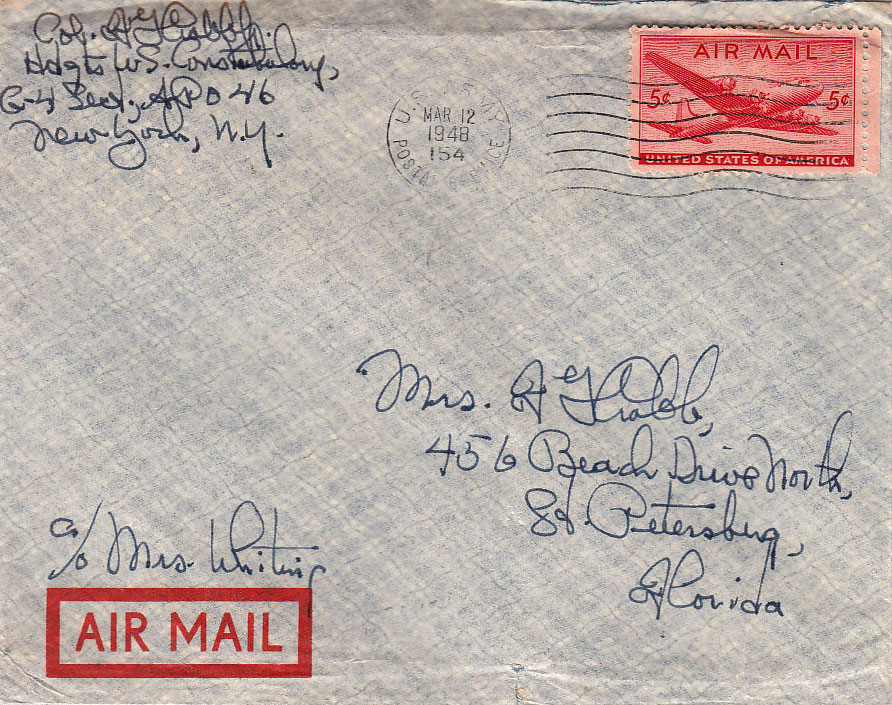 Col. H
Hdqts U.S. Constabulary,
G-4 Sect., APO 46
New York, N.Y.
U.S. ARMY
MAR 12
1948
154
POSTAL SERVICE
AIR MAIL
5¢ 5¢
UNITED STATES OF AMERICA
Mrs. H
456 Beach Drive North,
St. Petersburg,
Florida
c/o Mrs. Whiting
AIR MAIL